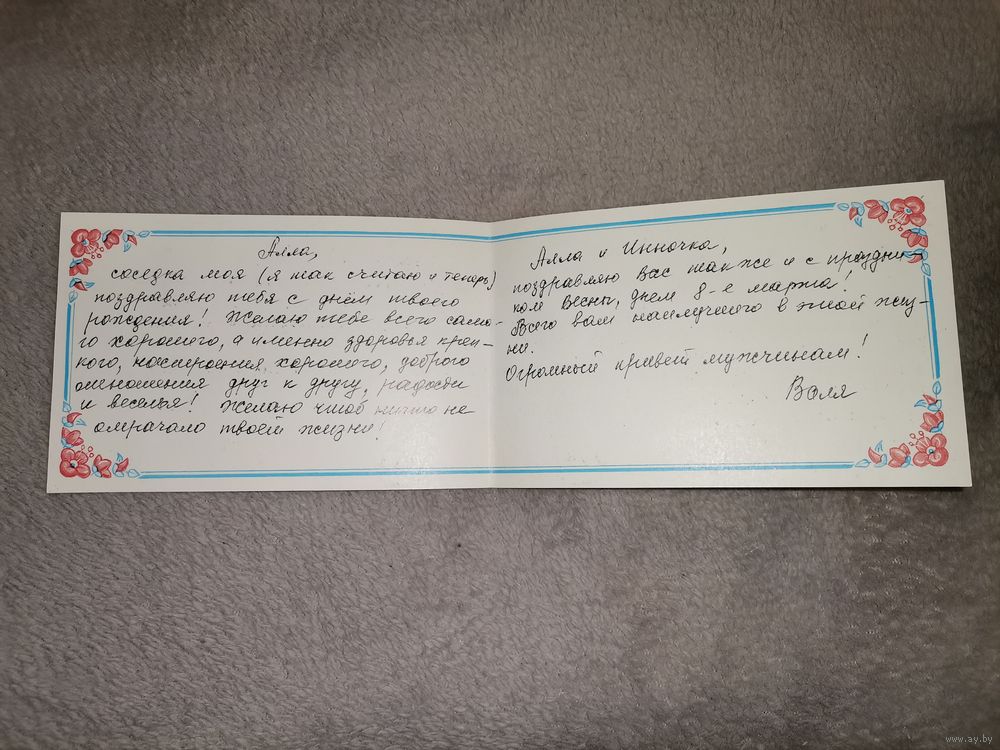 Алла,
соседка моя (я так считаю и теперь)
поздравляю тебя с днём твоего
рождения! Желаю тебе всего само-
го хорошего, а именно здоровья креп-
кого, настроения хорошего, доброго
отношения друг к другу, радости
и веселья! Желаю чтоб ничто не
омрачало твоей жизни!
Алла и Инночка,
поздравляю Вас также и с праздни
ком Весны, днем 8-е марта!
Всего вам наилучшего в этой жиз-
ни.
Огромный привет мужчинам!
Валя
www.ay.by